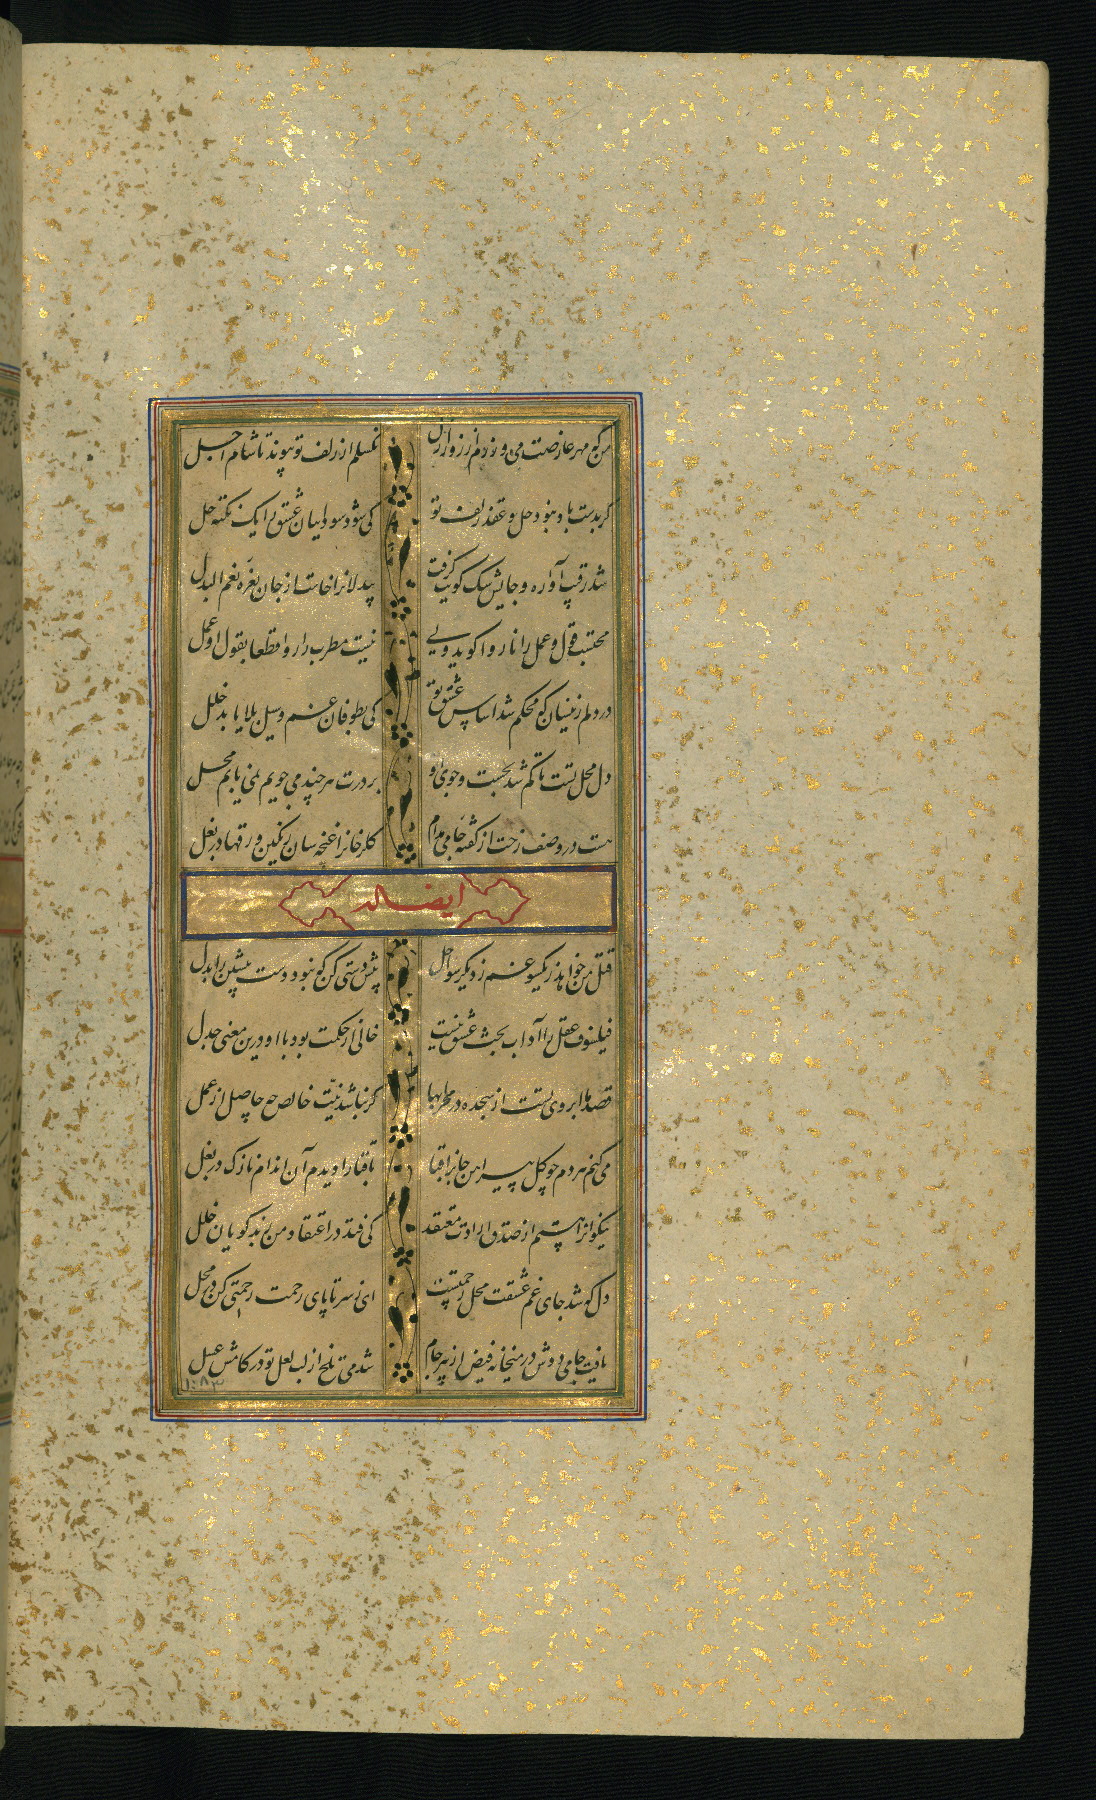 من که مهر عارضت می ورزم از روز ازل نگسلم از زلف تو پیوند تا شام اجل
گر بدست باد نبود حل و عقد زلف تو کی شود سوداییان عشق را یک نکته حل
شد رقیب آواره و جایش سگ کویت گرفت بیدلانرا خاست از جان نعره نعم البدل
محتسب قول و عمل را ناروا گوید ولی نیست مطرب را روا قطعا بقول او عمل
در دلم زینسان که محکم شد اساس عشق تو کی بطوفان غم و سیل بلا یابد خلل
دل محل تست تا گم شد بجست و جوی او بر درت هر چند می جویم نمی یابم محل
هست در وصف رخت از گفته جامی مدام گلرخانرا غنچه سان رنگین ورقها در بغل
ایضا له
قتل من خواهد ز یکسو غم ز دیگر سو اجل پیش دستی کن که نبود دست پیشین را بدل
فیلسوف عقل را آداب بحث عشق نیست خالی از حکمت بود با او درین معنی جدل
قصد ما ابروی تست از سجده در محرابها گر نباشد نیت خالص چه حاصل از عمل
می کنم هر دم چو گل پیراهن جانرا قبا تا قبا را دیدم آن اندام نازک در بغل
نیکوانرا هستم از صدق ارادت معتقد کی فتد در اعتقاد من ز بدگویان خلل
دل که شد جای غم عشقت محل رحمتست ای ز سر تا پای رحمت رحمتی کن در محل
یافت جامی دوش در میخانه فیض از پیر جام شد می تلخ از لب لعل تو در کامش عسل